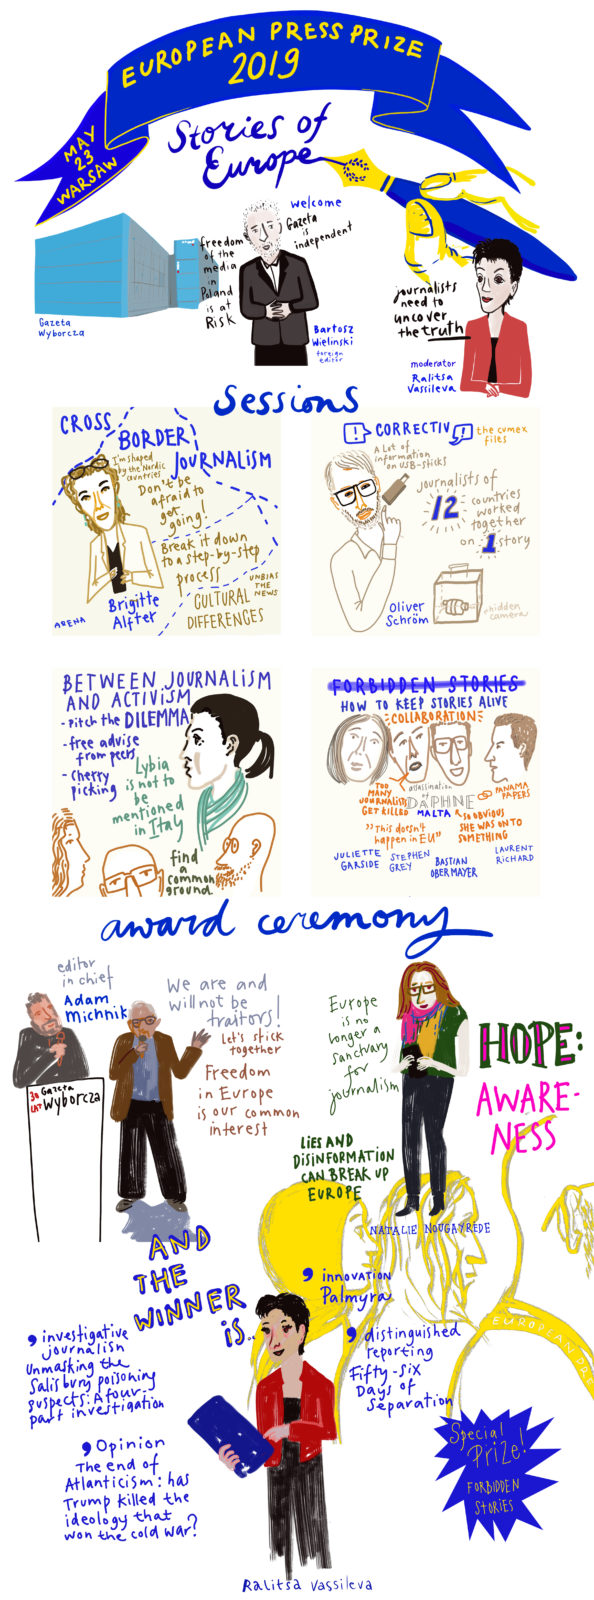 EUROPEAN PRESS PRIZE
2019
MAY
23
WARSAW
Stories of
Europe
welcome
Gazeta
is
independent
freedom
of the
media
in
Poland
is at
Risk
Gazeta
Wyborcza
Bartosz
Wielinski
foreign
editor
journalists
need to
uncover
the truth
moderator
Ralitsa
Vassileva
Sessions
CROSS
BORDER
JOURNALISM
I'm shaped
by the Nordic
countries
Don't be
afraid to
get
going!
Break it down
to a step-by-step
process
UNBIAS
THE
NEWS
CULTURAL
DIFFERENCES
Brigitte
Alfter
ARENA
! CORRECTIV !
the cumex
files
A Lot of
information
on USB-sticks
journalists of
12
countries
worked
together
on 1 story
Oliver
Schröm
hidden
camera
BETWEEN JOURNALISM
AND ACTIVISM
- pitch the DILEMMA
- free advise
from peers
- cherry
picking
Lybia
is not to
be
mentioned
in Italy
find
a
common
ground
FORBIDDEN STORIES
HOW TO KEEP STORIES ALIVE
COLLABORATION
TOO
MANY
JOURNALISTS
GET KILLED
assassination
of
DAPHNE
MALTA
PANAMA
PAPERS
SO OBVIOUS
SHE WAS ONTO
SOMETHING
"This doesn't
happen in EU"
JULIETTE
GARSIDE
STEPHEN
GREY
BASTIAN
OBERMAYER
LAURENT
RICHARD
award ceremony
editor
in chief
Adam
Michnik
We are and
will not be
traitors!
Let's stick
together
Freedom
in Europe
is our common
interest
30
LAT
Gazeta
Wyborcza
Europe
is no
longer a
sanctuary
for
journalism
HOPE:
AWARE-
NESS
LIES AND
DISINFORMATION
CAN BREAK UP
EUROPE
NATALIE NOUGAYRÈDE
AND
THE
WINNER
is...
innovation
Palmyra
distinguished
reporting
Fifty-six
Days of
Separation
investigative
journalism
Unmasking the
Salisbury poisoning
suspects: A four-
part investigation
Opinion
The end of
Atlanticism: has
Trump killed the
ideology that
won the cold war?
EUROPEAN PRE
Special
Prize!
FORBIDDEN
STORIES
Ralitsa Vassileva